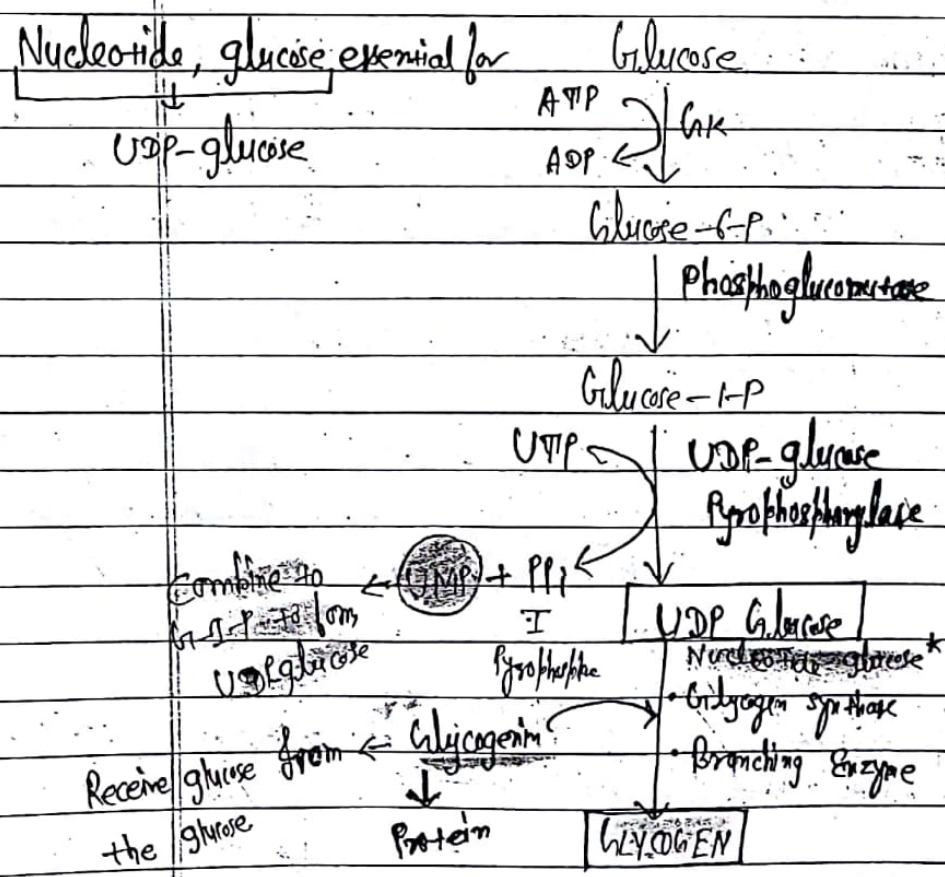 Nucleotide, glucose essential for Glucose
UDP-glucose
ATP
GK
ADP
Glucose-6-P
Phosphoglucomutase
Glucose-1-P
UTP
UDP-glucose
Pyrophosphorylase
Combine to ← UMP + PPi
G-1-P to form
UDP glucose
I
Pyrophosphate
UDP Glucose
Nucleotide glucose*
• Glycogen synthase
• Branching Enzyme
Receive glucose from ← Glycogenin
the glucose
Protein
GLYCOGEN